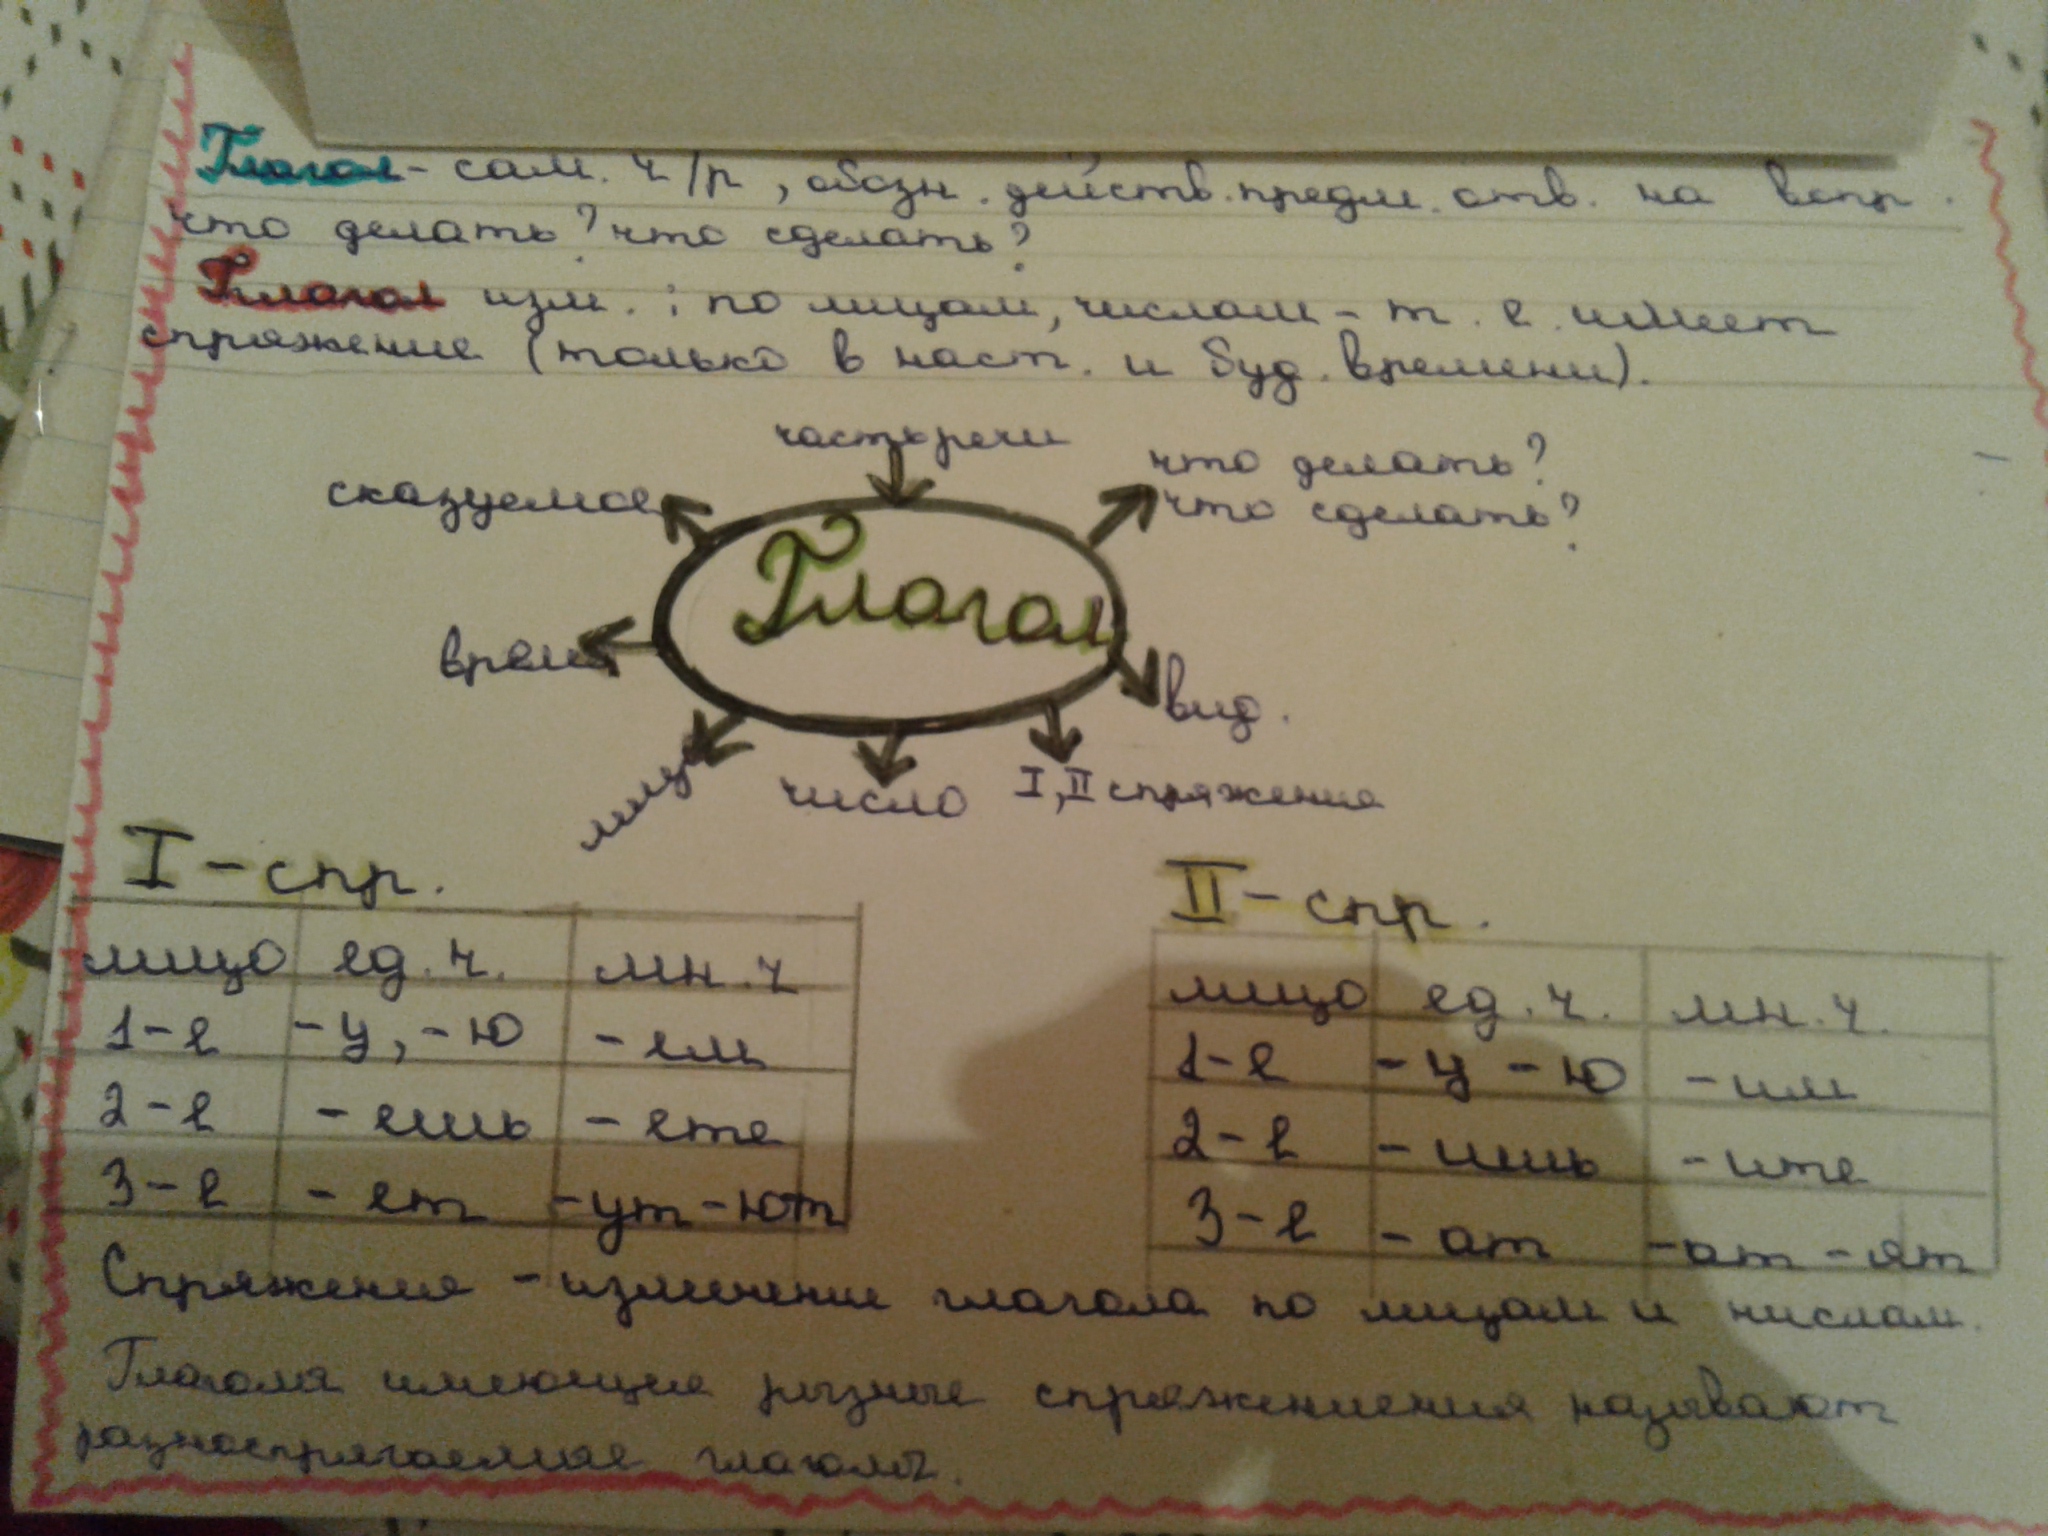 Глагол - сам. ч/р, обозн. действ. предм. отв. на вопр.
что делать? что сделать?
Глагол изм.: по лицам, числам - т. е. имеет
спряжение (только в наст. и буд. времени).
часть речи
что делать?
сказуемое
что сделать?
Глагол
время
вид.
лицо
число
I, II спряжение
I - спр.
II - спр.
лицо ед. ч. мн. ч
1-е -у, -ю -ем
2-е -ешь -ете
3-е -ет -ут -ют
лицо ед. ч. мн. ч.
1-е -у -ю -им
2-е -ишь -ите
3-е -ат -ат -ят
Спряжение - изменение глагола по лицам и числам.
Глаголя имеющие разные спряжениения называют
разноспрягаемые глаголы.